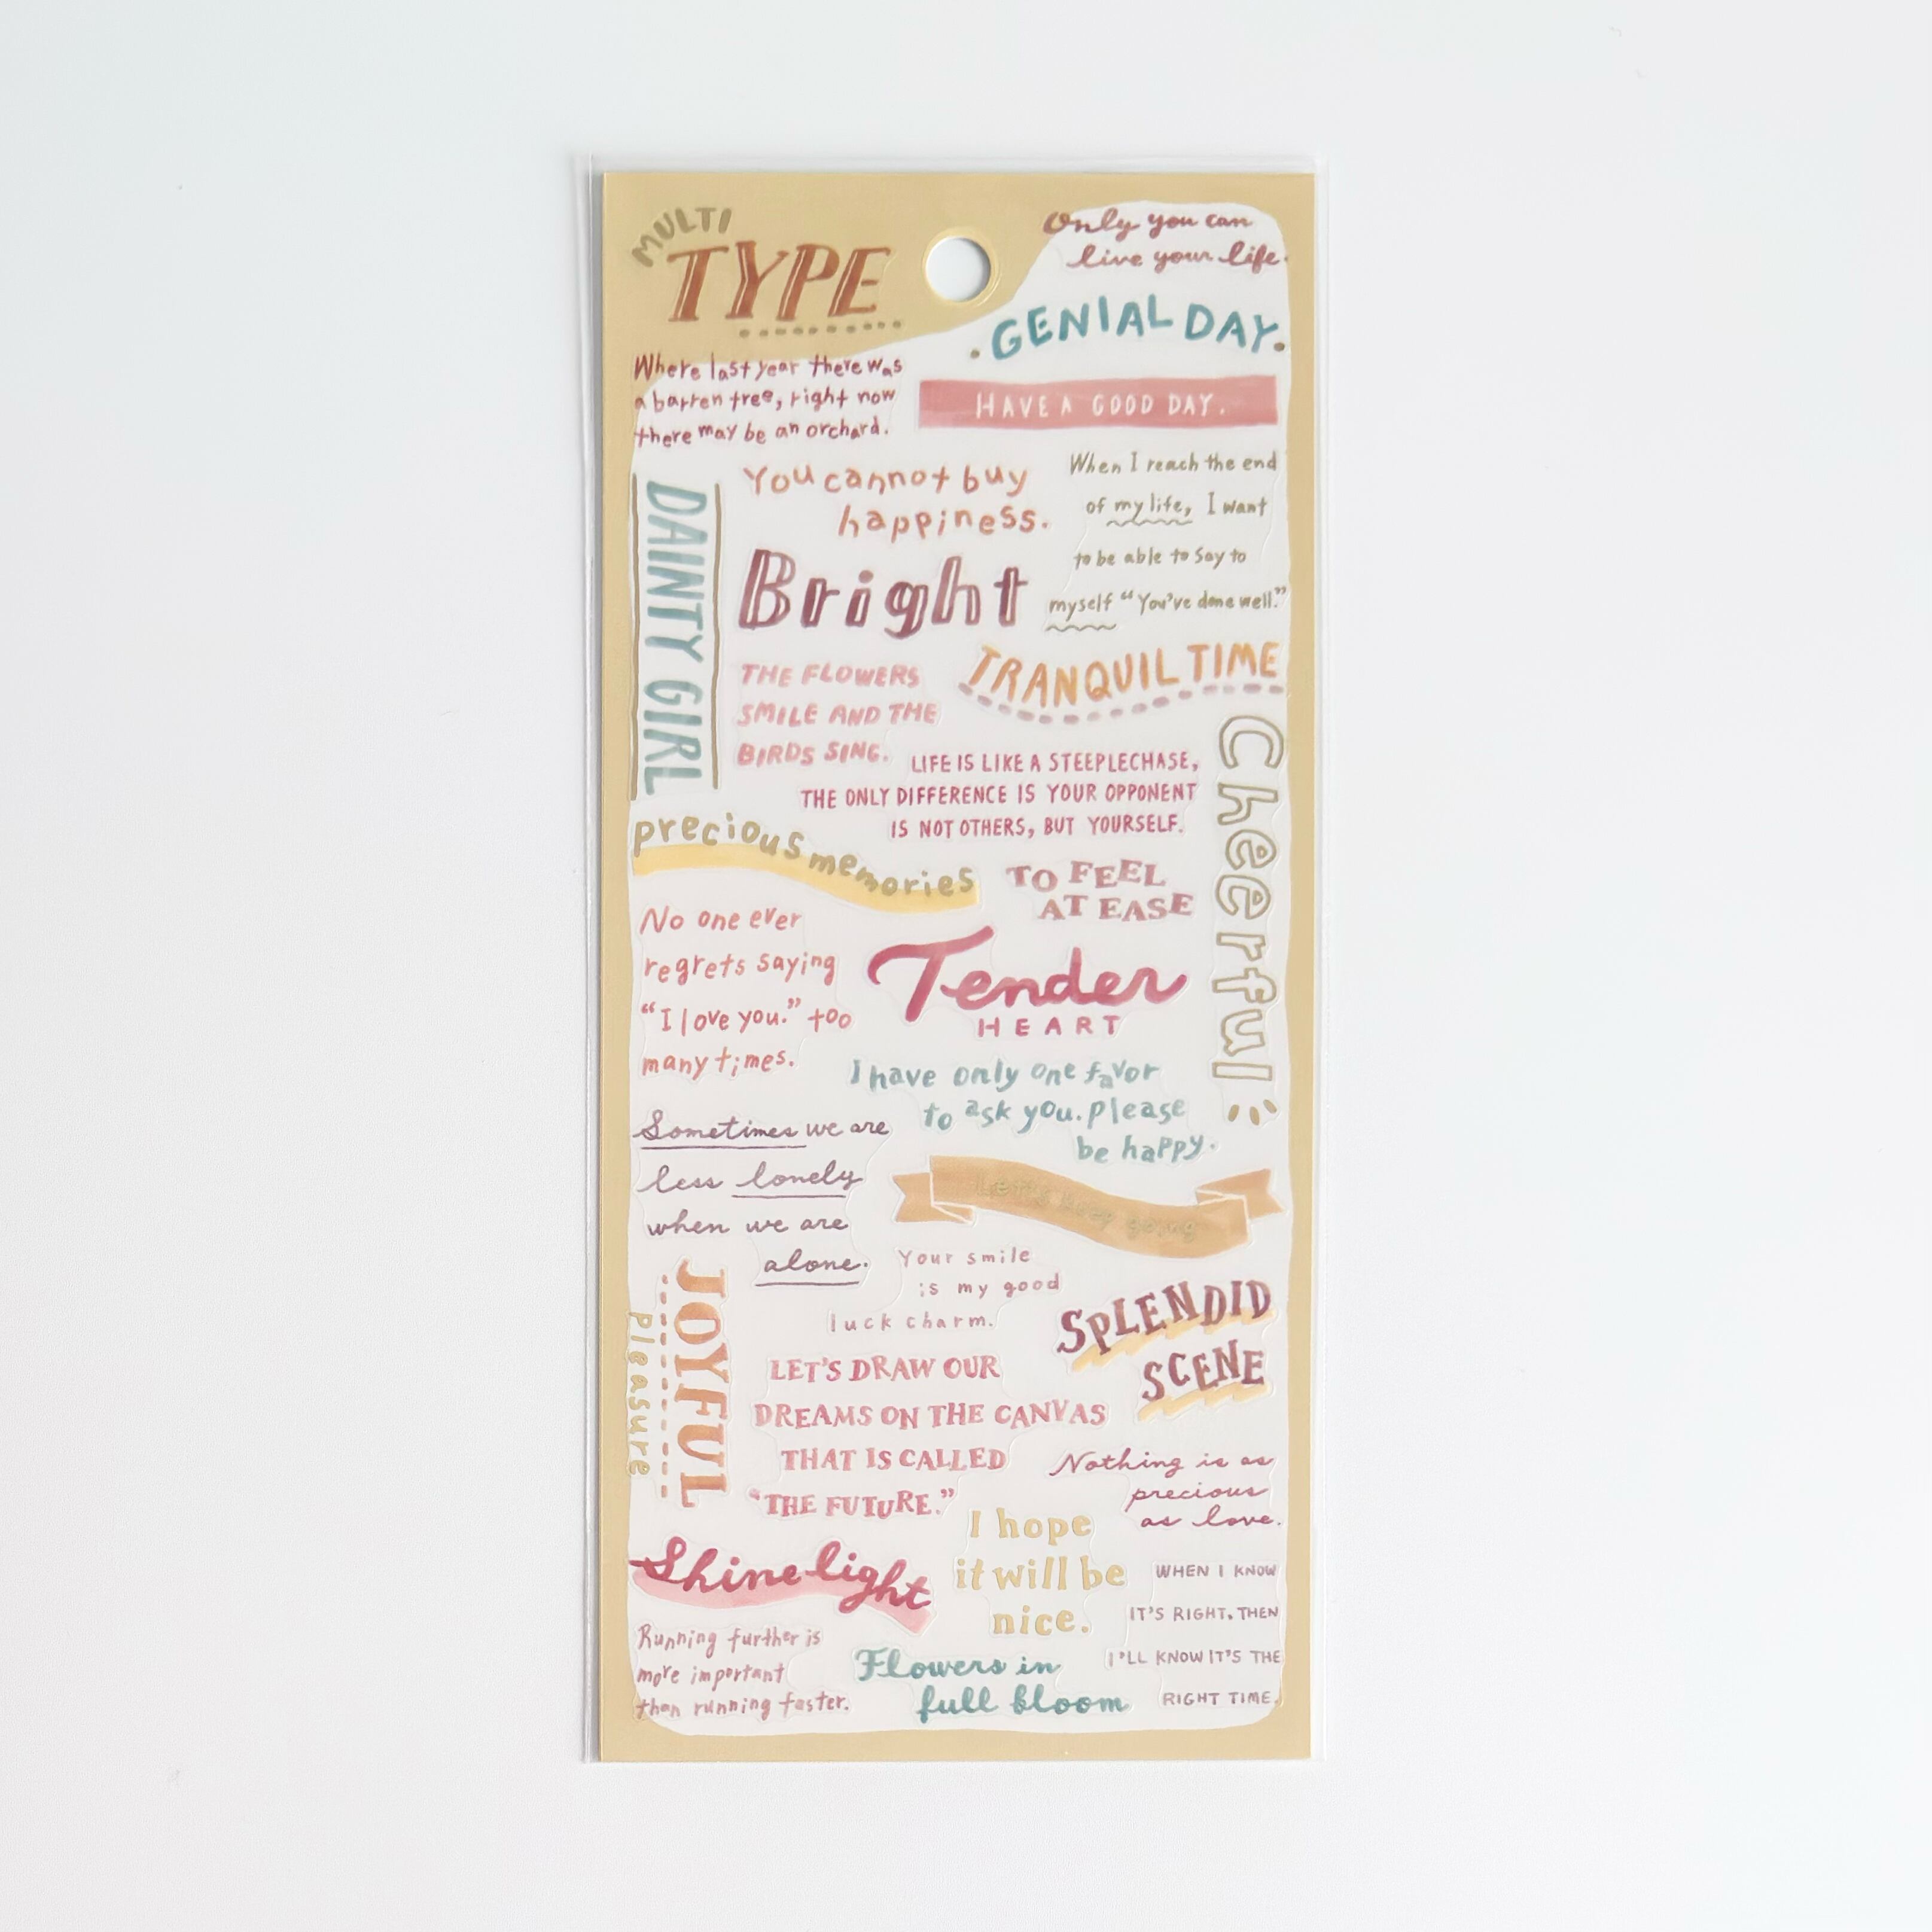 MULTI
TYPE
Only you can
live your life.
GENIAL DAY.
Where last year there was
a barren tree, right now
there may be an orchard.
HAVE A GOOD DAY.
You cannot buy
happiness.
When I reach the end
of my life, I want
to be able to say to
myself "You've done well."
DAINTY GIRL
Bright
TRANQUIL TIME
THE FLOWERS
SMILE AND THE
BIRDS SING.
Cheerful
LIFE IS LIKE A STEEPLECHASE,
THE ONLY DIFFERENCE IS YOUR OPPONENT
IS NOT OTHERS, BUT YOURSELF.
precious memories
TO FEEL
AT EASE
No one ever
regrets saying
"I love you." too
many times.
Tender
HEART
I have only one favor
to ask you. please
be happy.
Sometimes we are
less lonely
when we are
alone.
Let's keep going
Your smile
is my good
luck charm.
JOYFUL
pleasure
SPLENDID
SCENE
LET'S DRAW OUR
DREAMS ON THE CANVAS
THAT IS CALLED
"THE FUTURE."
Nothing is as
precious
as love.
Shine light
I hope
it will be
nice.
WHEN I KNOW
IT'S RIGHT, THEN
I'LL KNOW IT'S THE
RIGHT TIME.
Running further is
more important
than running faster.
Flowers in
full bloom